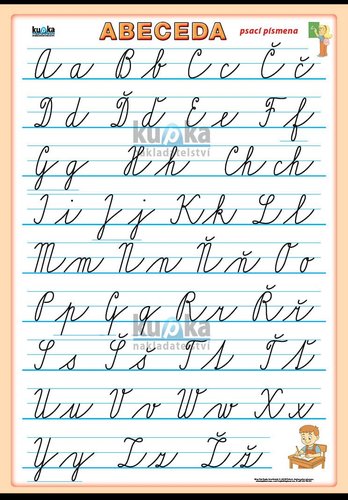 kupka
nakladatelství
ABECEDA
psací písmena
A a B b C c Č č
D d Ď ď E e F f
G g H h Ch ch
I i J j K k L l
kupka
nakladatelství
M m N n Ň ň O o
P p Q q R r Ř ř
S s Š š T t Ť ť
kupka
nakladatelství
U u V v W w X x
Y y Z z Ž ž